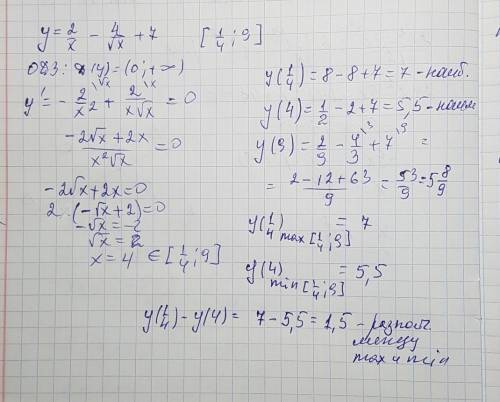 y = 2/x - 4/√x + 7   [1/4; 9]
ОДЗ: D(y) = (0; +∞)
y' = - 2/x² \√x + 2/(x√x) \x = 0
(-2√x + 2x)/(x²√x) = 0
-2√x + 2x = 0
2 · (-√x + 2) = 0
-√x = -2
√x = 2
x = 4 ∈ [1/4; 9]
y(1/4) = 8 - 8 + 7 = 7 - наиб.
y(4) = 1/2 - 2 + 7 = 5,5 - наим
y(9) = 2/9 - 4/3 \3 + 7 \9 =
= (2 - 12 + 63)/9 = 53/9 = 5 8/9
y(1/4) max [1/4; 9] = 7
y(4) min [1/4; 9] = 5,5
y(1/4) - y(4) = 7 - 5,5 = 1,5 - разность
между
max и min